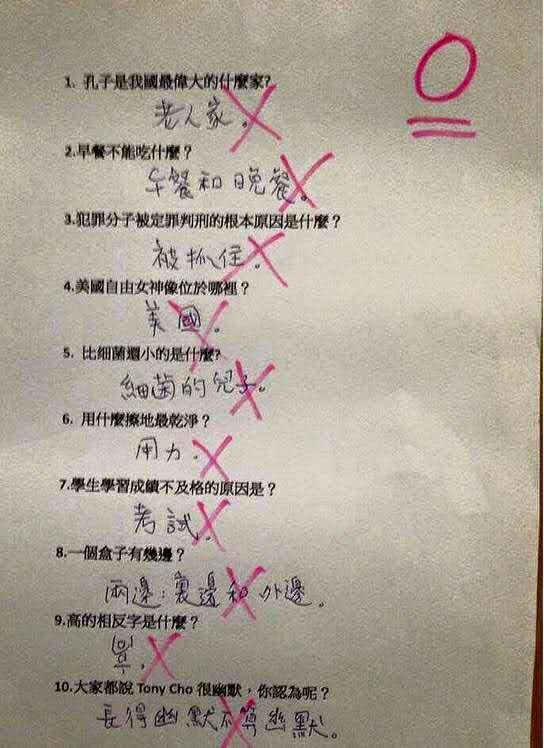 0
1. 孔子是我國最偉大的什麼家?
老人家。
2.早餐不能吃什麼？
午餐和晚餐。
3.犯罪分子被定罪判刑的根本原因是什麼？
被抓住。
4.美國自由女神像位於哪裡？
美國。
5. 比細菌還小的是什麼?
細菌的兒子。
6. 用什麼擦地最乾淨？
用力。
7.學生學習成績不及格的原因是？
考試。
8.一個盒子有幾邊？
兩邊：裏邊和外邊。
9.高的相反字是什麼？
10.大家都說 Tony Cho 很幽默，你認為呢？
長得幽默不算幽默。